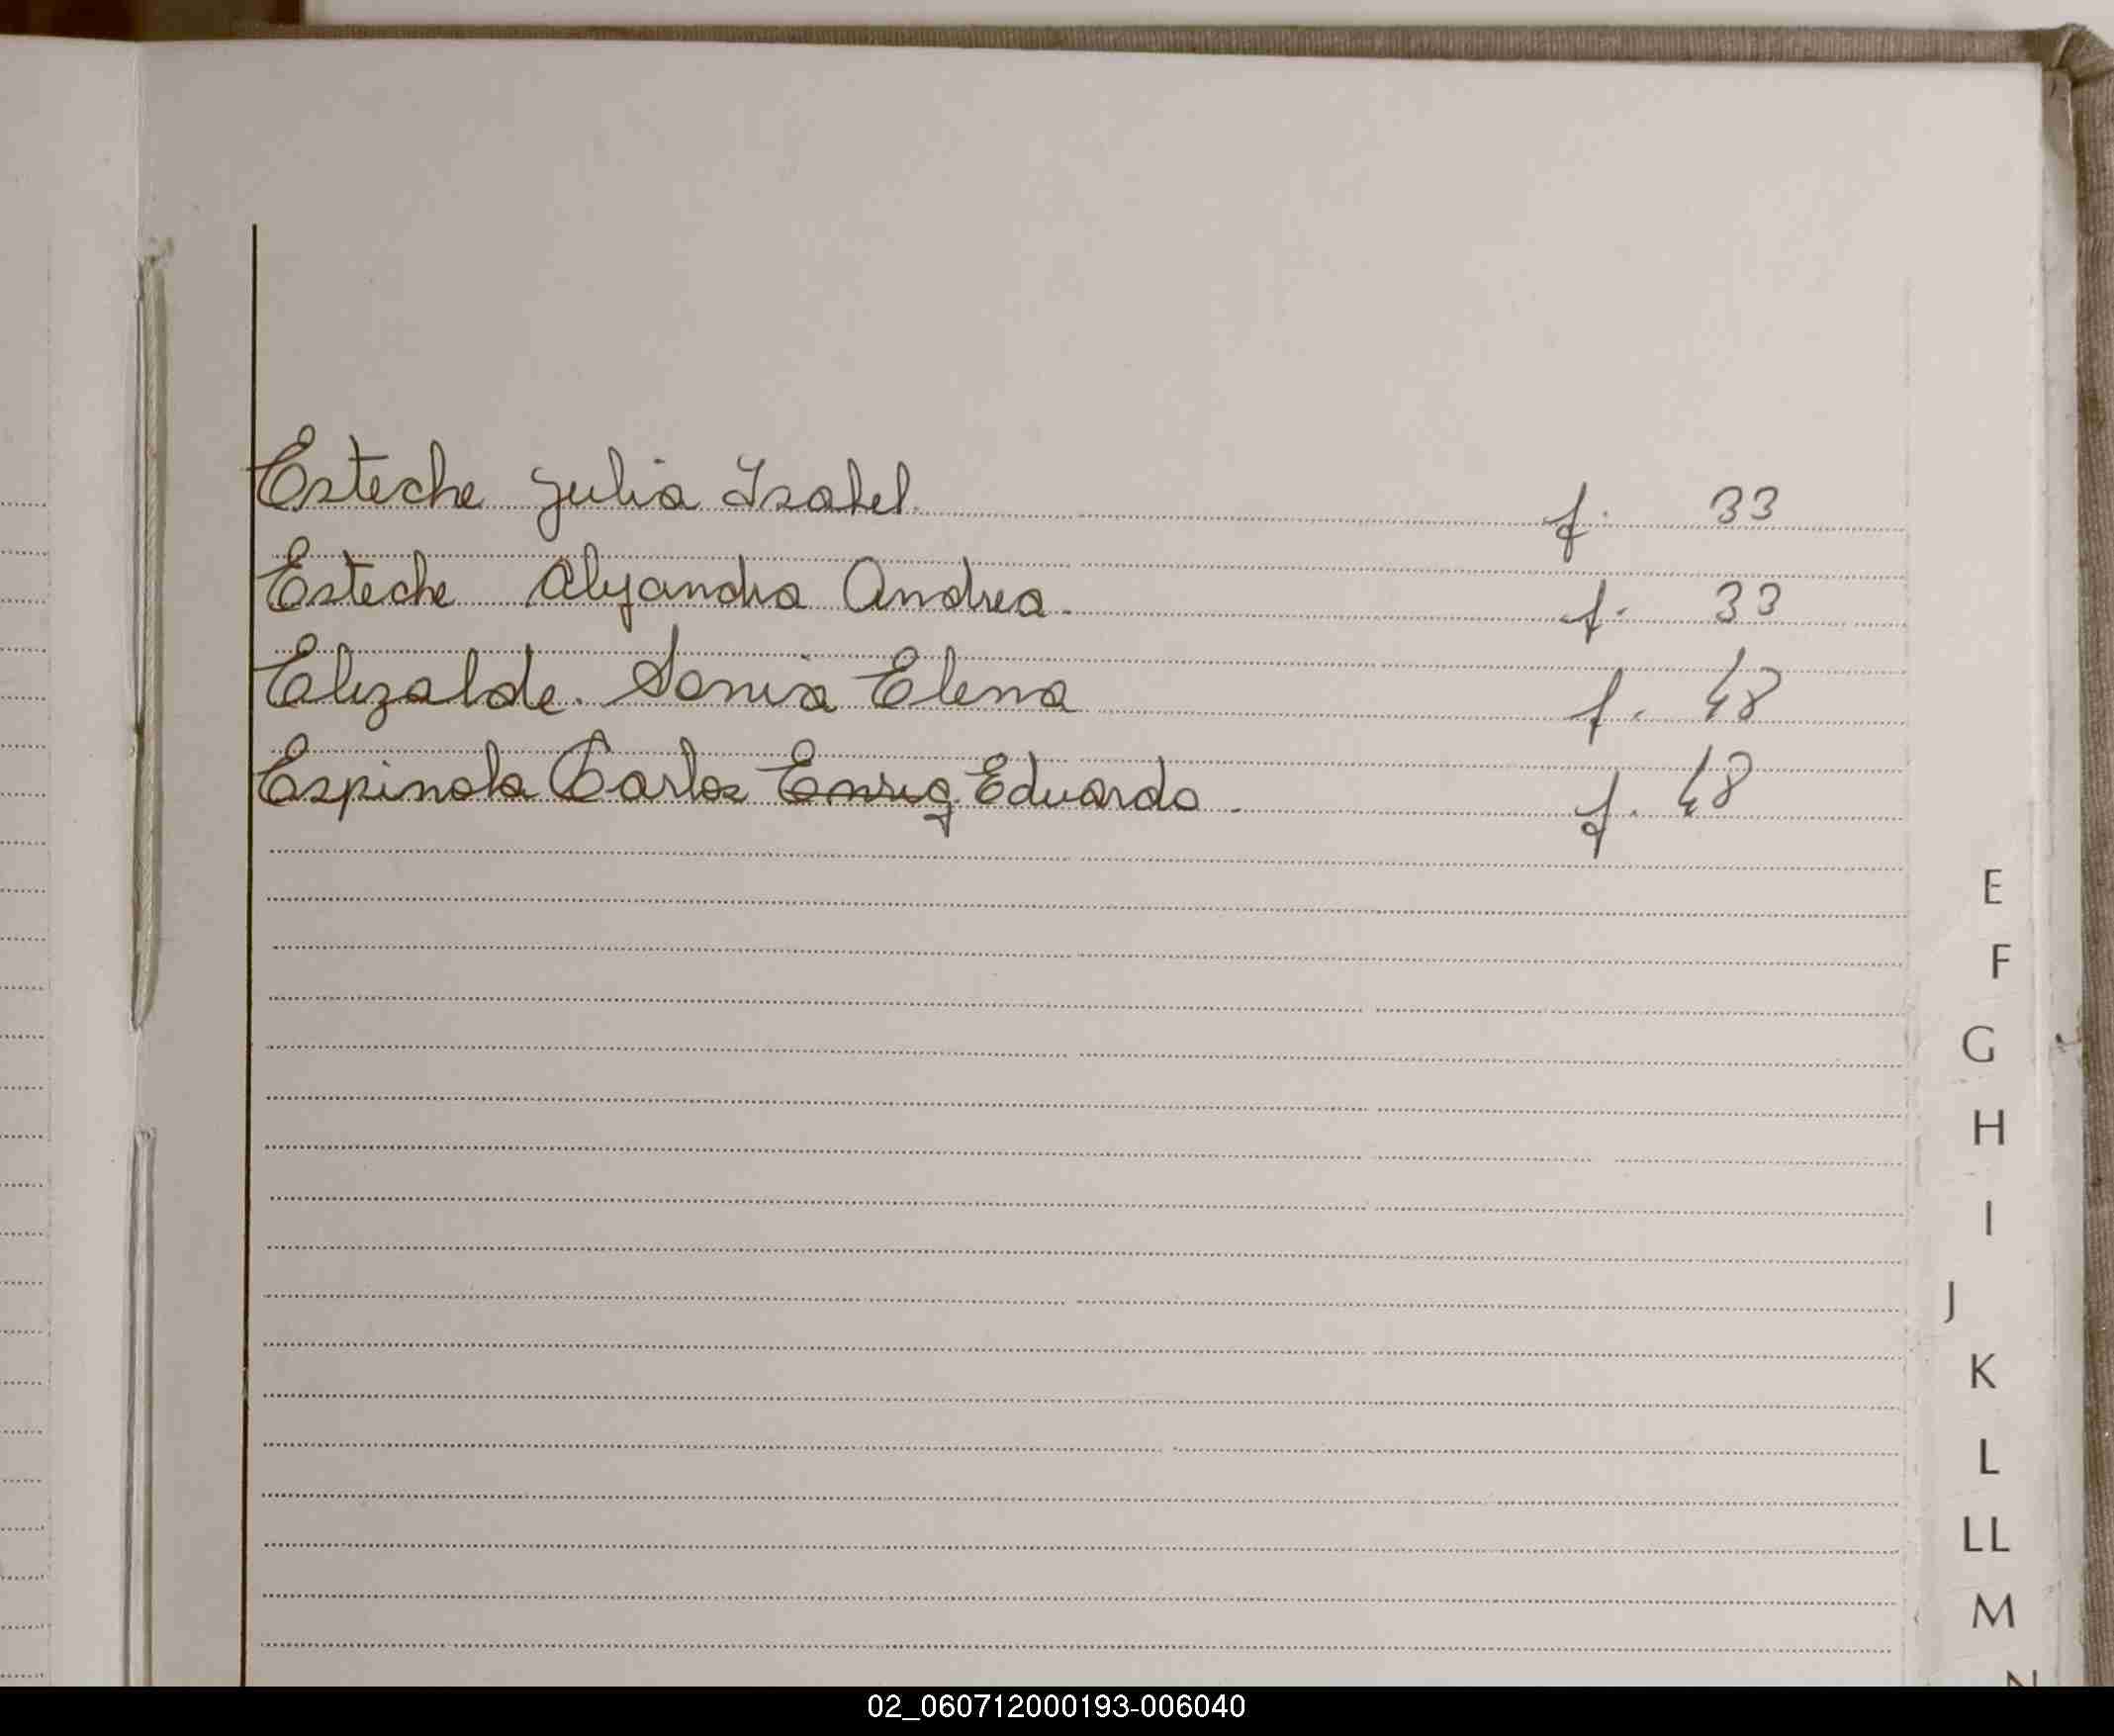 Esteche Julia Isabel. f. 33
Esteche Alejandra Andrea. f. 33
Elizalde. Sonia Elena f. 48
Espinola Carlos Enriq Eduardo. f. 48
E
F
G
H
I
J
K
L
LL
M
N
02_060712000193-006040